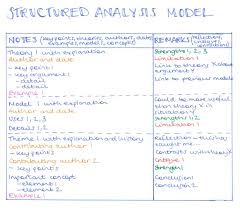 STRUCTURED ANALYSIS MODEL
NOTES (key points, theories, authors, dates, example, model, concepts)
REMARKS (reflection,
Theory 1 with explanation
Author and date
- key point 1
- key argument
- detail
- detail
Example 1
Strengths 1, 2, 3
Limitation 1
Link to theory
argument
Link to previous model
Model 1 with explanation
Author and date
Uses 1, 2, 3
Details 1, 2
Could be more useful
than theory
Strength 1
Limitation 1
Theme 1 with explanation and history
Contributing author 1
- key point 1
Contributing author 2
- key point 1
Important concept
- element 1
- element 2
Example 1
Reflection - this has
caught
contrasts with theory
Critique 1
Strength 1
Conclusion 1
Conclusion 2